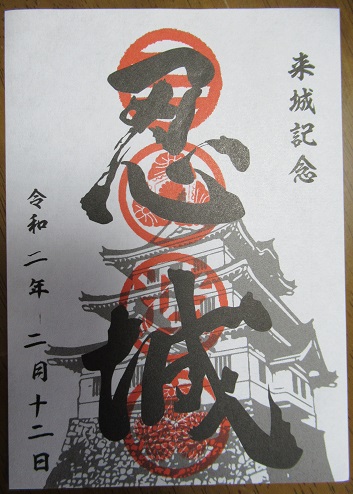 来城記念
忍城
令和二年 二月十二日